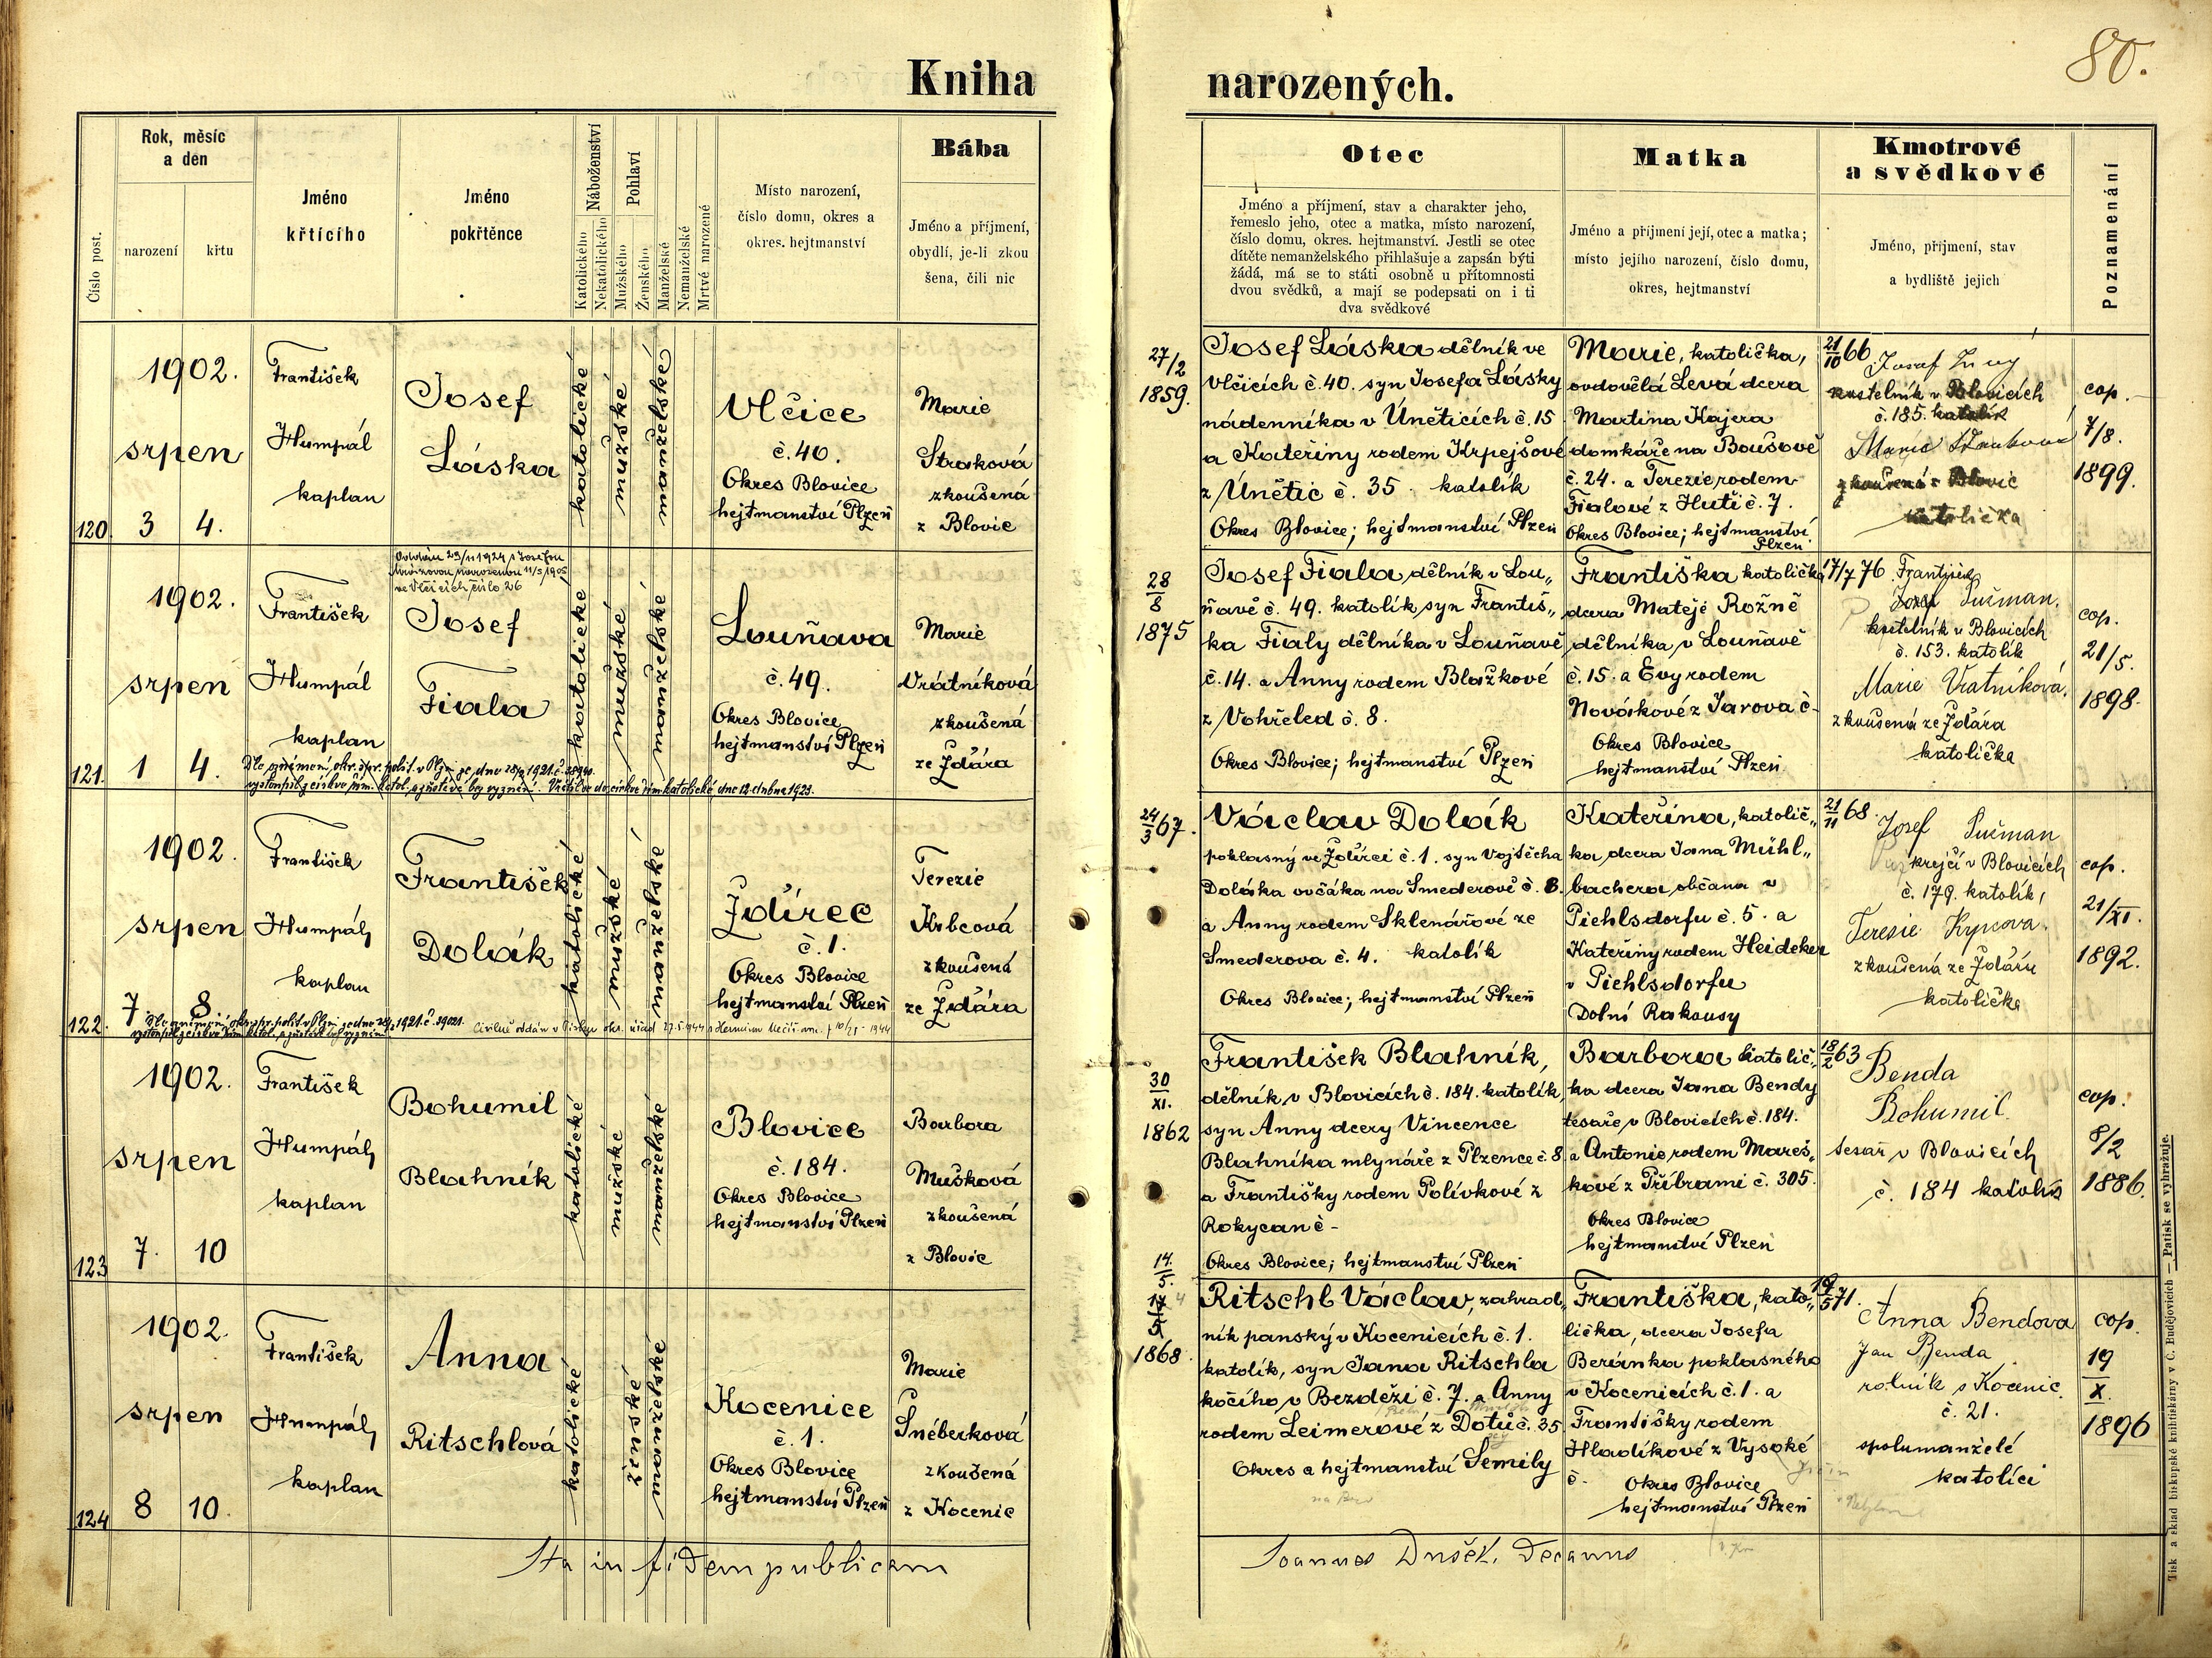 80.
Kniha narozených.
Číslo post.
Rok, měsíc
a den
narození
křtu
Jméno
křtícího
Jméno
pokřtěnce
Náboženství
Katolického
Nekatolického
Pohlaví
Mužského
Ženského
Manželské
Nemanželské
Mrtvé narozené
Místo narození,
číslo domu, okres a
okres. hejtmanství
Bába
Jméno a příjmení,
obydlí, je-li zkou
šena, čili nic
Otec
Jméno a příjmení, stav a charakter jeho,
řemeslo jeho, otec a matka, místo narození,
číslo domu, okres. hejtmanství. Jestli se otec
dítěte nemanželského přihlašuje a zapsán býti
žádá, má se to státi osobně u přítomnosti
dvou svědků, a mají se podepsati on i ti
dva svědkové
Matka
Jméno a příjmení její, otec a matka;
místo jejího narození, číslo domu,
okres, hejtmanství
Kmotrové
a svědkové
Jméno, příjmení, stav
a bydliště jejich
Poznamenání
120
1902.
srpen
3 4.
František
Humpál
kaplan
Josef
Láska
katolické
mužské
manželské
Vlčice
č. 40.
Okres Blovice
hejtmanství Plzeň
Marie
Straková
zkoušená
z Blovic
27/2
1859.
Josef Láska dělník ve
Vlčicích č. 40. syn Josefa Lásky
nádenníka v Úněticích č. 15
a Kateřiny rodem Krpejšové
z Únětic č. 35. katolík
Okres Blovice; hejtmanství Plzeň
Marie, katolička,
ovdovělá Levá dcera
Martina Kajera
domkáře na Boušově
č. 24. a Terezie rodem
Fialové z Hutí č. 7.
Okres Blovice; hejtmanství
Plzeň
21/10 66
Josef
kostelník v Blovicích
č. 185. katolík
Marie
zkoušená z Blovic
katolička
cop.
7/8.
1899.
121.
1902.
srpen
1 4.
František
Humpál
kaplan
Oddán 29/11 1924 s Josefou
narozenou 11/5 1905
ve Vlčicích číslo 26
Josef
Fiala
katolické
mužské
manželské
Louňava
č. 49.
Okres Blovice
hejtmanství Plzeň
Marie
Vrátníková
zkoušená
ze Ždára
Dle oznámení okr. spr. polit. v Plzni ze dne 1921.č.
vystoupil z církve řím. katol. a zůstává bez vyznání. Vrátil se do církve římskokatolické dne 12. dubna 1923.
28/8
1875
Josef Fiala dělník v Lou„
ňavě č. 49. katolík syn Františ„
ka Fialy dělníka v Louňavě
č. 14. a Anny rodem Blažkové
z Vohřeled č. 8.
Okres Blovice; hejtmanství Plzeň
Františka katolička
dcera Matěje Rožně
dělníka v Louňavě
č. 15. a Evy rodem
Novákové z Jarova č -
Okres Blovice
hejtmanství Plzeň
17/7 76
František
Josef Sučman.
kostelník v Blovicích
č. 153. katolík
Marie Vratníková.
zkoušená ze Ždára
katolička
cop.
21/5.
1898.
122.
1902.
srpen
7 8
František
Humpál
kaplan
František
Dolák
katolické
mužské
manželské
Ždírec
č. 1.
Okres Blovice
hejtmanství Plzeň
Terezie
Krbcová
zkoušená
ze Ždára
Dle oznámení okr. spr. polit. v Plzni ze dne 1921.č. 39021.
vystoupil z církve řím. katol. a zůstává bez vyznání.
24/3 67.
Václav Dolák
poklasný ve Ždírci č. 1. syn Vojtěcha
Doláka ovčáka na Smederově č. 8.
a Anny rodem Sklenářové ze
Smederova č. 4. katolík
Okres Blovice; hejtmanství Plzeň
Kateřina, katolič„
ka, dcera Jana Mühl„
bachera, občana v
Piehlsdorfu č. 5. a
Kateřiny rodem Heideker
v Piehlsdorfu
Dolní Rakousy
21/11 68
Josef Sučman
krejčí v Blovicích
č. 179. katolík,
Terezie Krpcova.
zkoušená ze Ždáru
katolička
cop.
21/XI.
1892.
123
1902.
srpen
7. 10
František
Humpál
kaplan
Bohumil
Blahník
katolické
mužské
manželské
Blovice
č. 184.
Okres Blovice
hejtmanství Plzeň
Barbora
Mušková
zkoušená
z Blovic
30/XI.
1862
František Blahník,
dělník v Blovicích č. 184. katolík,
syn Anny dcery Vincence
Blahníka mlynáře z Plzence č. 8
a Františky rodem Polívkové z
Rokycan č -
Okres Blovice; hejtmanství Plzeň
Barbora katolič„
ka dcera Jana Bendy
tesaře v Blovicích č. 184.
a Antonie rodem Mareš„
kové z Příbrami č. 305.
Okres Blovice
hejtmanství Plzeň
18/2 63
Benda
Bohumil
tesař v Blovicích
č. 184 katolík
cop.
8/2
1886.
124
1902.
srpen
8 10.
František
Humpál
kaplan
Anna
Ritschlová
katolické
ženské
manželské
Kocenice
č. 1.
Okres Blovice
hejtmanství Plzeň
Marie
Šnéberková
zkoušená
z Kocenic
14/5.
17/5
1868.
Ritschl Václav, zahrad„
ník panský v Kocenicích č. 1.
katolík, syn Jana Ritschla
kočího v Bezdězi č. 7. a Anny
rodem Leimerové z Dotů č. 35
Okres a hejtmanství Semily
Františka, kato„
lička, dcera Josefa
Beránka poklasného
v Kocenicích č. 1. a
Františky rodem
Hladíkové z Vysoké
č.
Okres Blovice
hejtmanství Plzeň
19/5 71.
Anna Bendova
Jan Benda
rolník z Kocenic
č. 21.
spolumanželé
katolíci
cop.
19
X.
1896
Ita in fidem publicam
Joannes Dušek, Decanus
Tisk a sklad biskupské knihtiskárny v Č. Budějovicích — Patisk se vyhražuje.